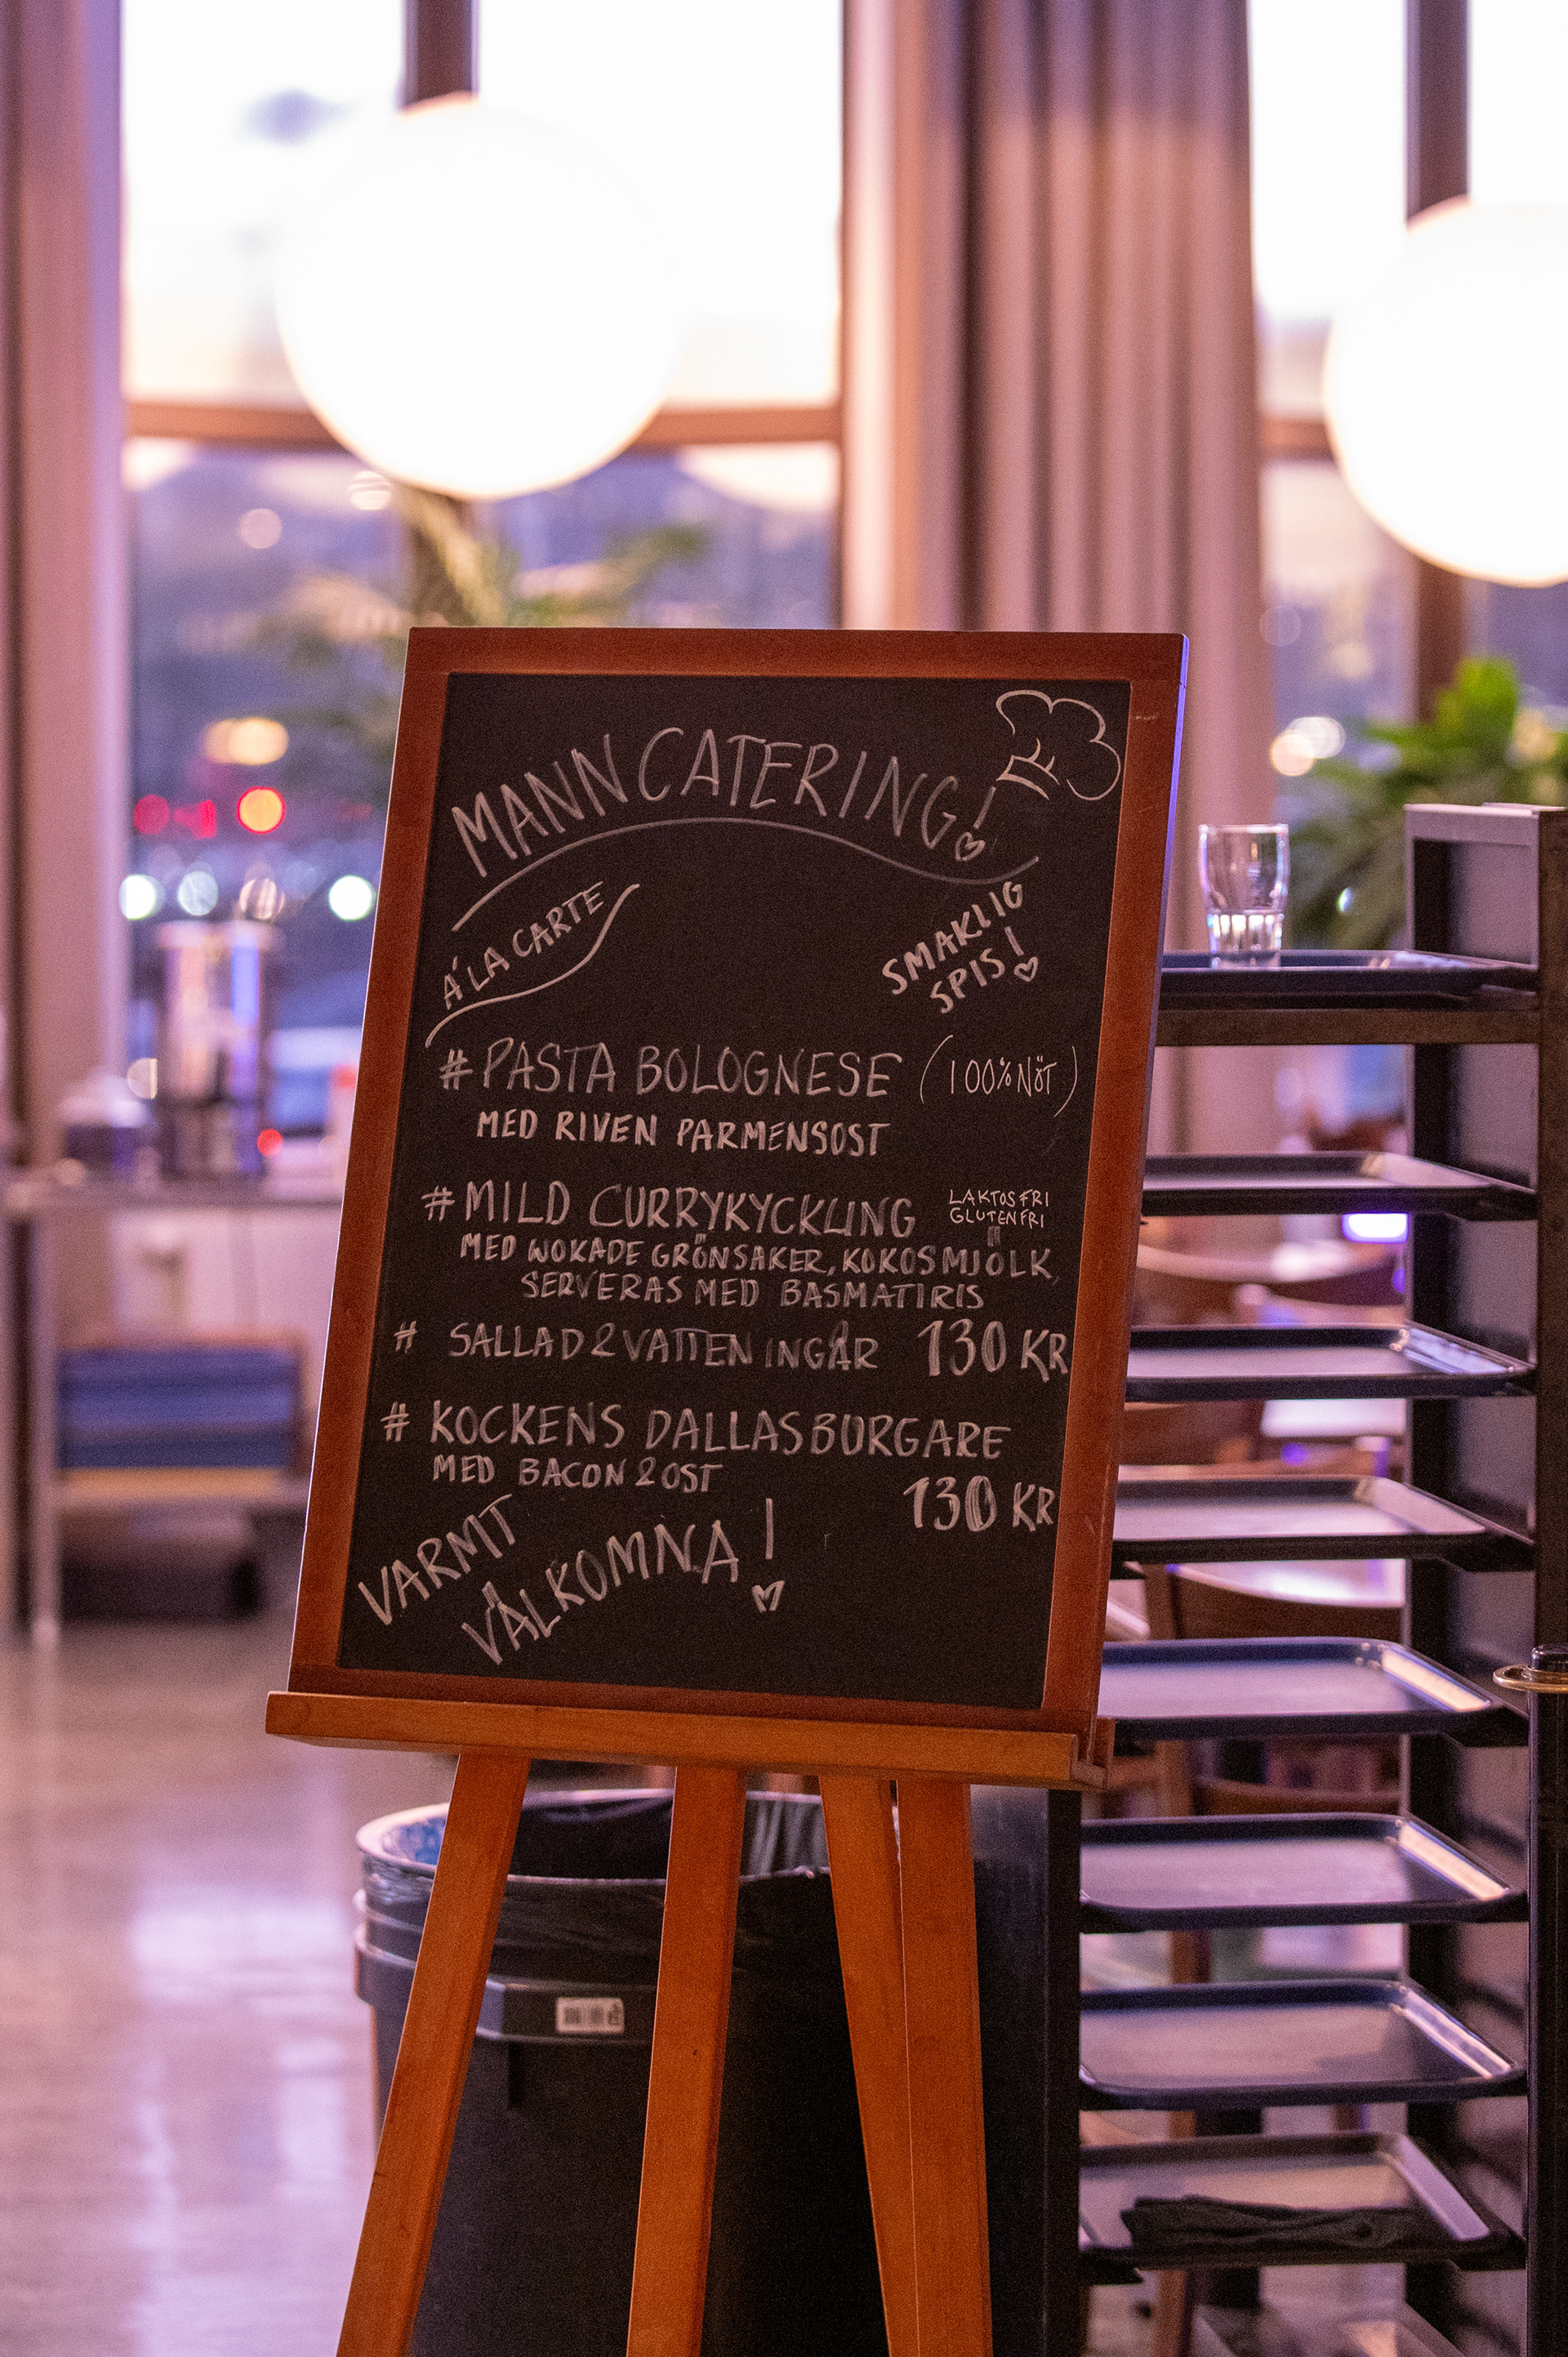 MANN CATERING!
Á LA CARTE
SMAKLIG
SPIS!
# PASTA BOLOGNESE (100% NÖT)
MED RIVEN PARMENSOST
# MILD CURRYKYCKLING
LAKTOSFRI
GLUTENFRI
MED WOKADE GRÖNSAKER, KOKOSMJÖLK,
SERVERAS MED BASMATIRIS
# SALLAD & VATTEN INGÅR 130 KR
# KOCKENS DALLASBURGARE
MED BACON & OST
130 KR
VARMT
VÄLKOMNA!